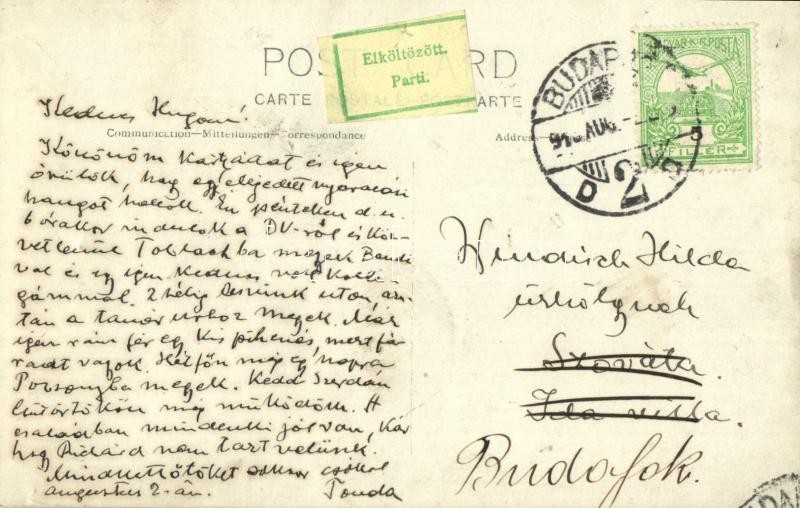 POST CARD
CARTE POSTALE POSTKARTE
Elköltözött.
Parti.
Communication—Mitteilungen—Correspondance
Address
MAGYAR KIR. POSTA
5
FILLÉR
BUDAPEST
916 AUG.
Kedves Hugom!
Köszönöm kártyádat és igen
örülök, hogy egy elejedett nyaralási
hangot hallok. Én pénteken d.u.
6 órakor indulok a DV-ról és köz-
vetlenül Toblachba megyek Bandi
val és egy igen kedves volt kolle-
gámmal. 2 hétig leszünk uton, az-
tán a tanár urhoz megyek. Már
igen rám fér egy kis pihenés, mert fá
radt vagyok. Hétfőn még egy napra
Pozsonyba megyek. Kedd Szerdán
csütörtökön még működöm. A
családban mindenki jól van, kár
hogy Richárd nem tart velünk.
Mindkettőtöket sokszor csókol
augusztus 2-án. Tonda
Windisch Hilda
úrhölgynek
Szováta.
Ida villa.
Budafok.